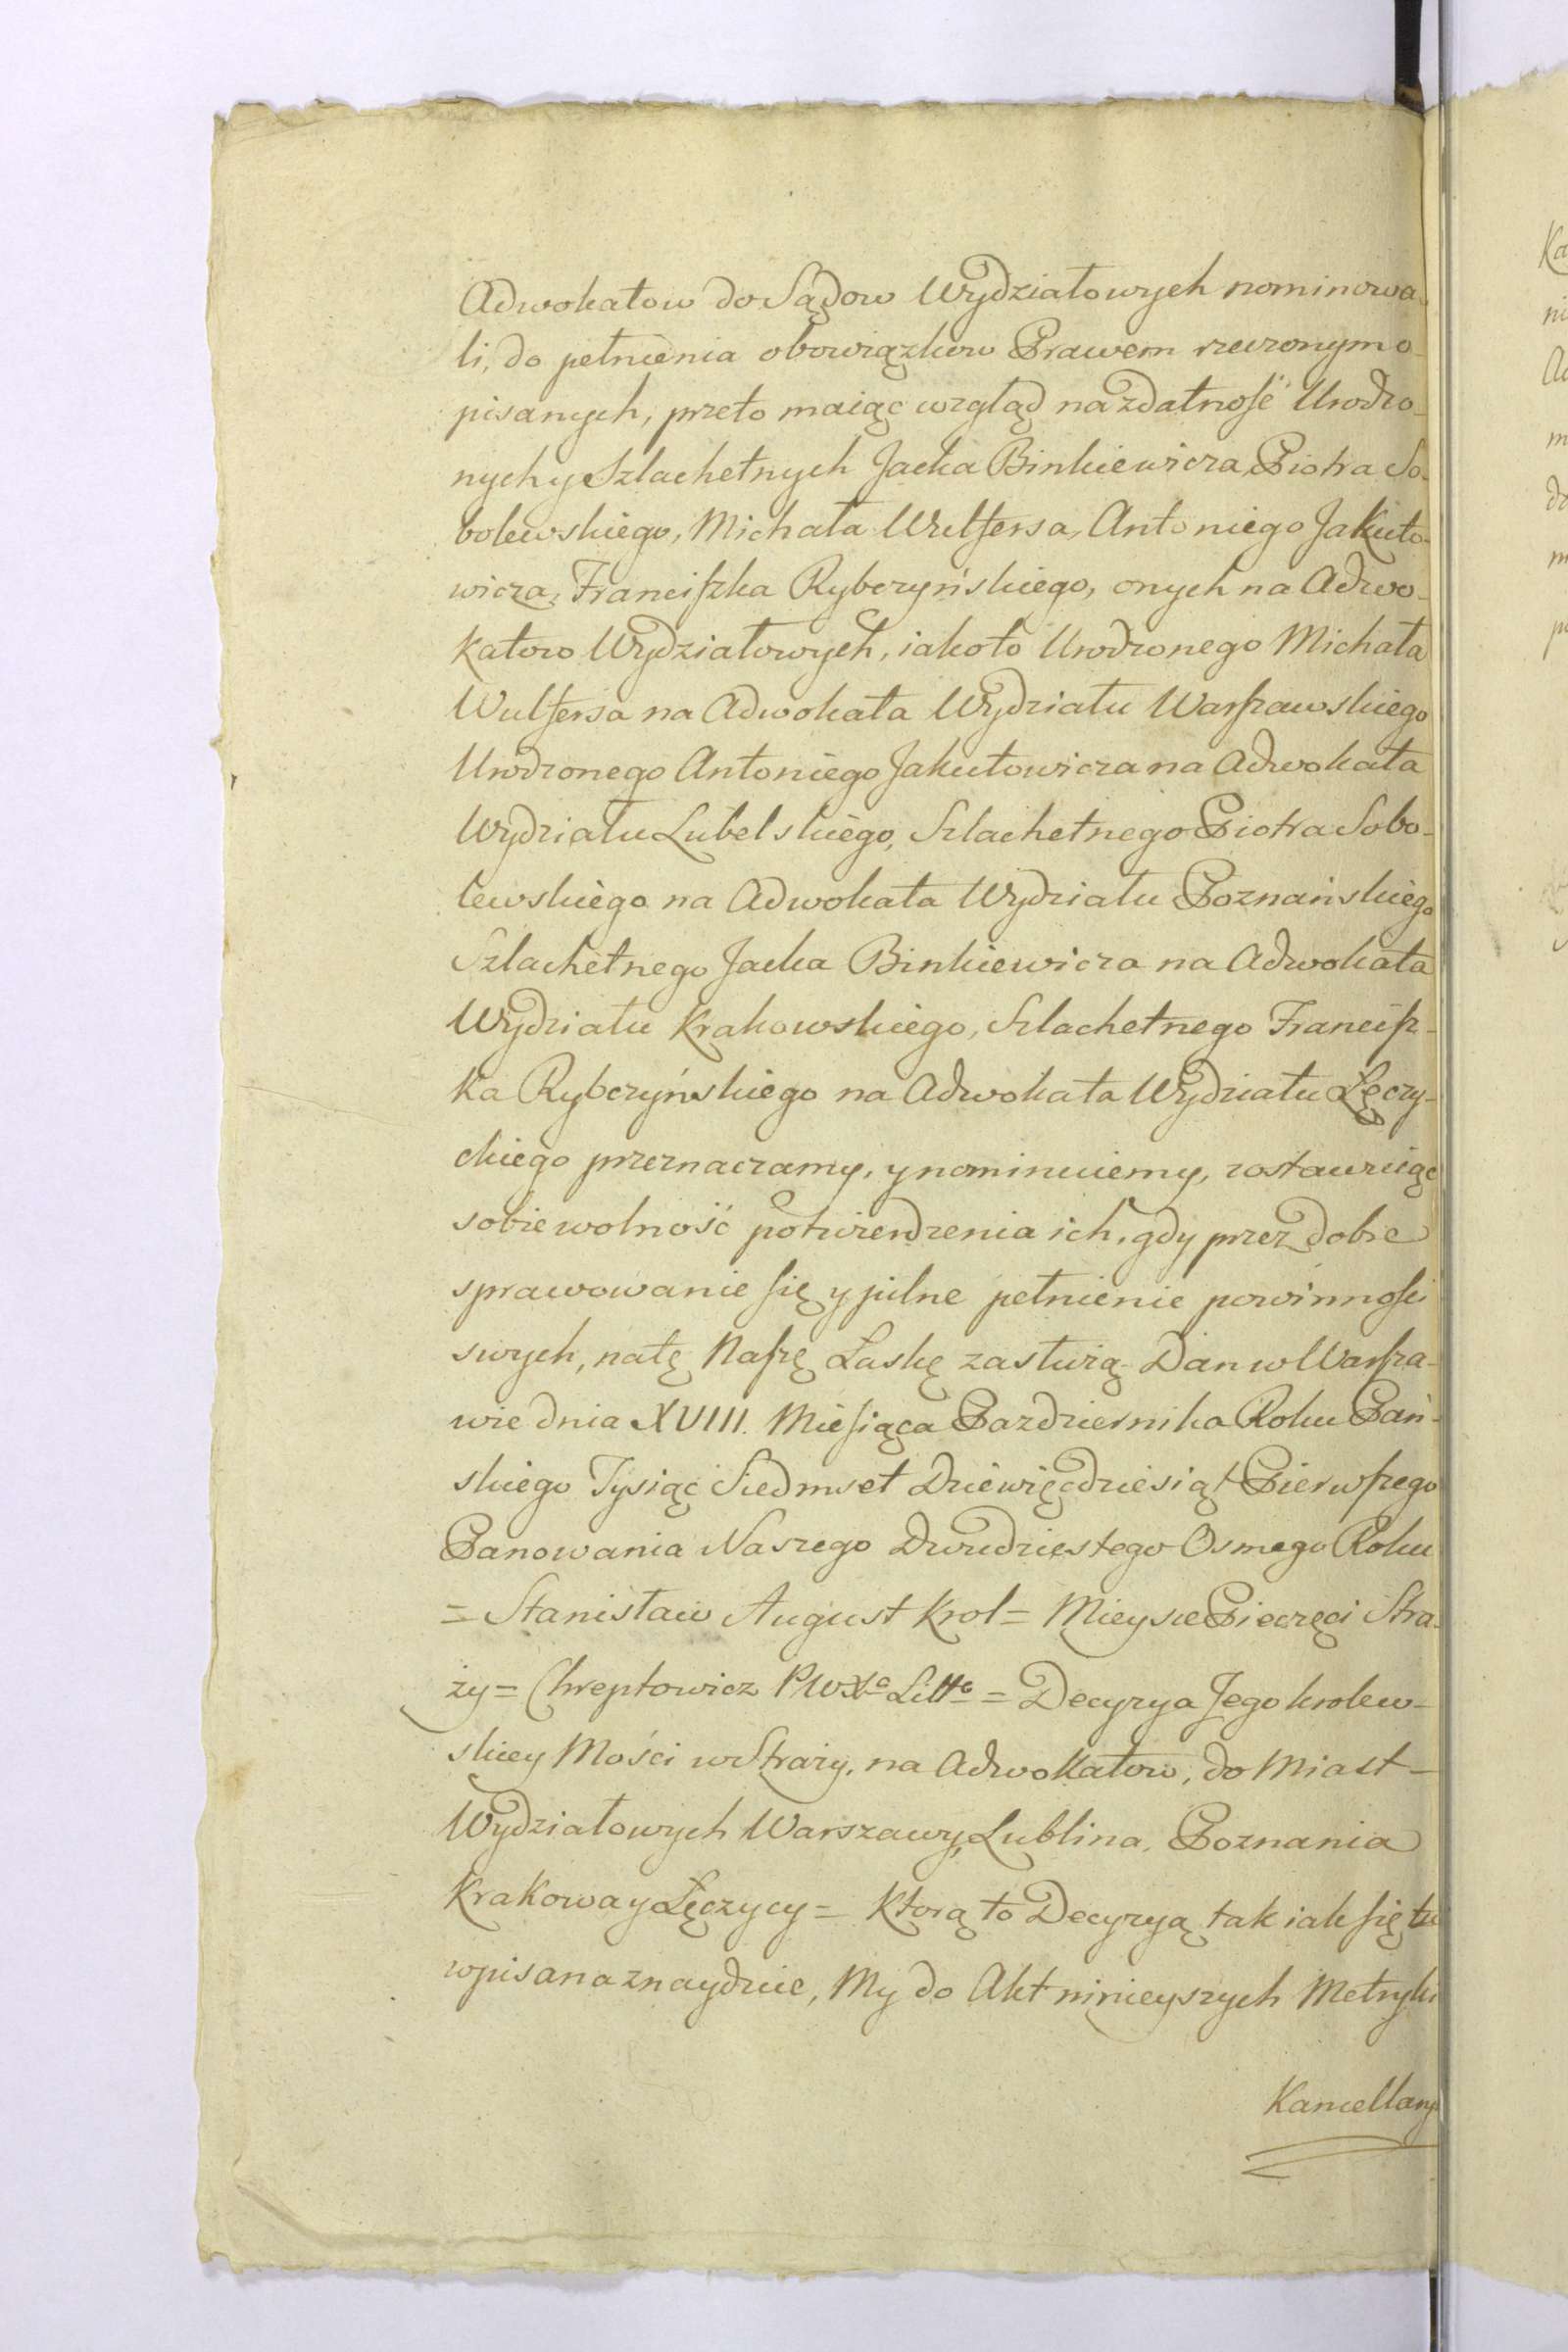 Adwokatow do Sądow Wydziałowych nominowa-
li, do pełnienia obowiązkow Prawem rzeczonym o-
pisanych, przeto maiąc wzgląd na zdatność Urodzo-
nych y Szlachetnych Jacka Binkiewicza, Piotra So-
bolewskiego, Michała Wulfersa, Antoniego Jakuto-
wicza, Franciszka Rybczyńskiego, onych na Adwo-
katow Wydziałowych, iakoto Urodzonego Michała
Wulfersa na Adwokata Wydziału Warszawskiego
Urodzonego Antoniego Jakutowicza na Adwokata
Wydziału Lubelskiego, Szlachetnego Piotra Sobo-
lewskiego na Adwokata Wydziału Poznańskiego
Szlachetnego Jacka Binkiewicza na Adwokata
Wydziału Krakowskiego, Szlachetnego Francisz-
ka Rybczyńskiego na Adwokata Wydziału Łęczy-
ckiego przeznaczamy, y nominuiemy, zostawuiąc
sobie wolność potwierdzenia ich, gdy przez dobre
sprawowanie się y pilne pełnienie powinności
swych, na tę Naszę Łaskę zasłużą. Dan w Warsza-
wie dnia XVIII. Miesiąca Pazdziernika Roku Pań-
skiego Tysiąc Siedmset Dziewięcdziesiąt Pierwszego
Panowania Naszego Dwudziestego Osmego Roku
= Stanisław August Krol = Mieysce Pieczęci Stra-
ży = Chreptowicz P W X<sup>a</sup> Litt<sup>o</sup> = Decyzya Jego Krolew-
skiey Mości w Straży, na Adwokatow, do Miast
Wydziałowych Warszawy, Lublina, Poznania
Krakowa y Łęczycy = Ktorą to Decyzyą tak iak się tu
wpisana znayduie, My do Akt ninieyszych Metryki
Kancellary